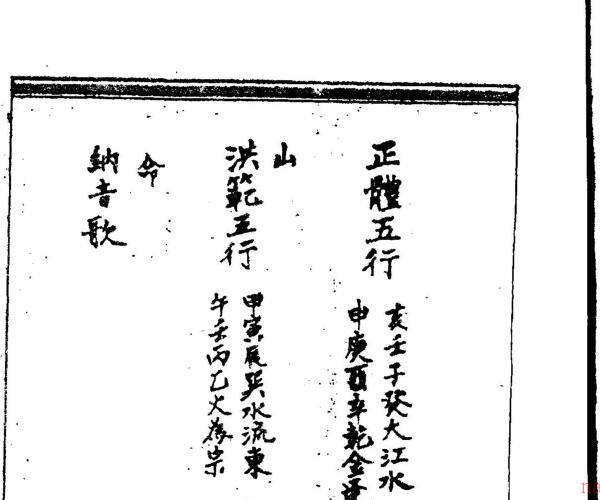 正體五行
亥壬子癸大江水
申庚酉辛乾金
山
洪範五行
甲寅辰巽水流東
午壬丙乙火為宗
命
納音歌